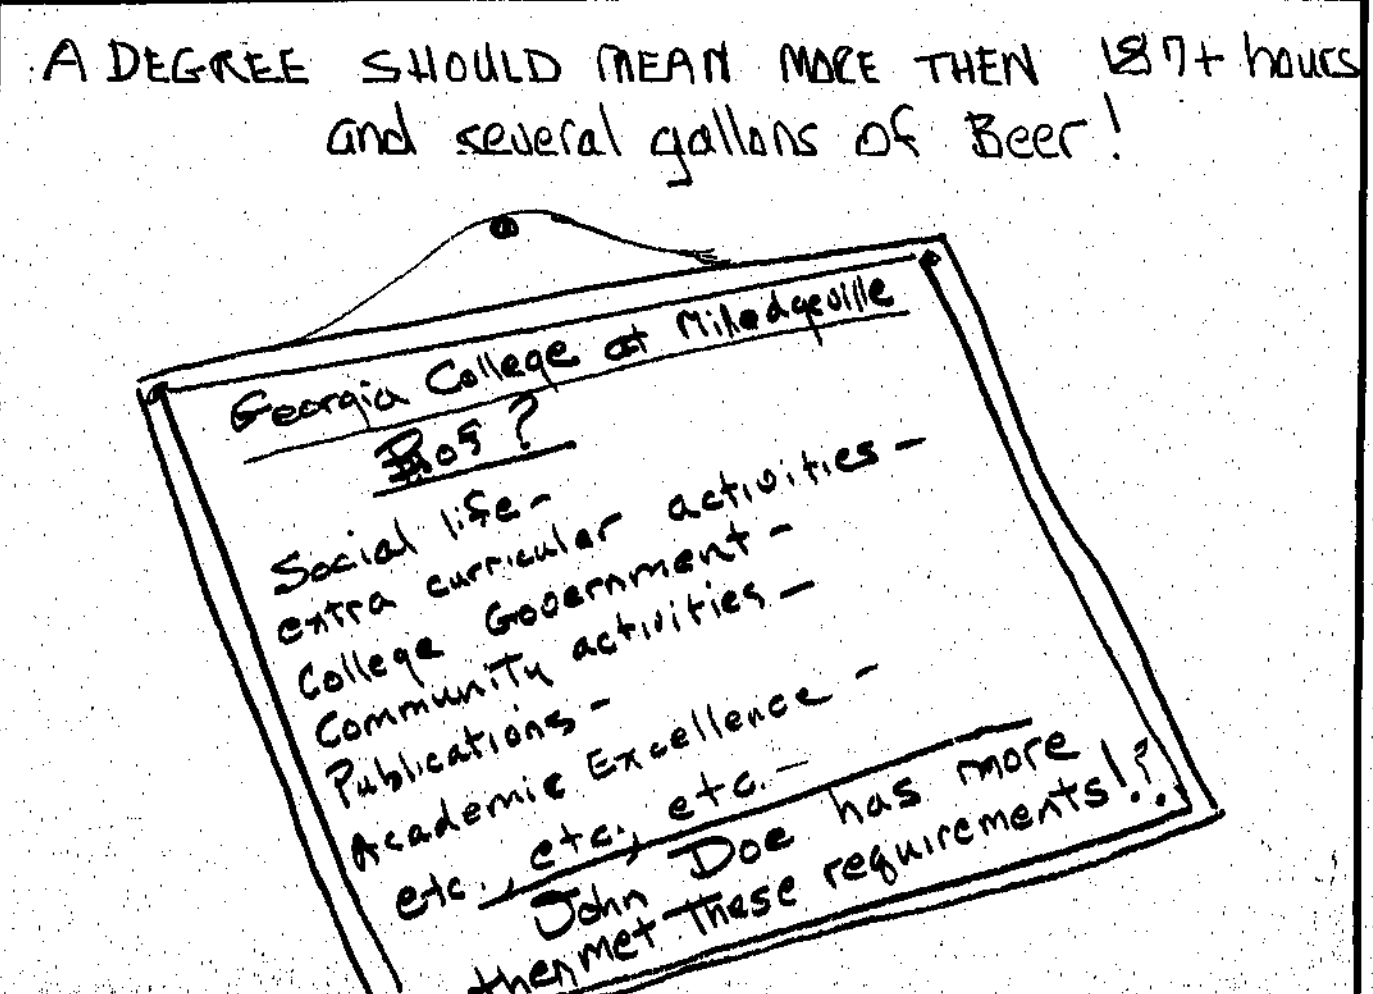 A DEGREE SHOULD MEAN MORE THEN 187+ hours
and several gallons of Beer!
Georgia College at Milledgeville
?
Social life-
extra curricular activities-
College Government-
Community activities-
Publications-
Academic Excellence-
etc., etc., etc.-
John Doe has more
then met these requirements!?